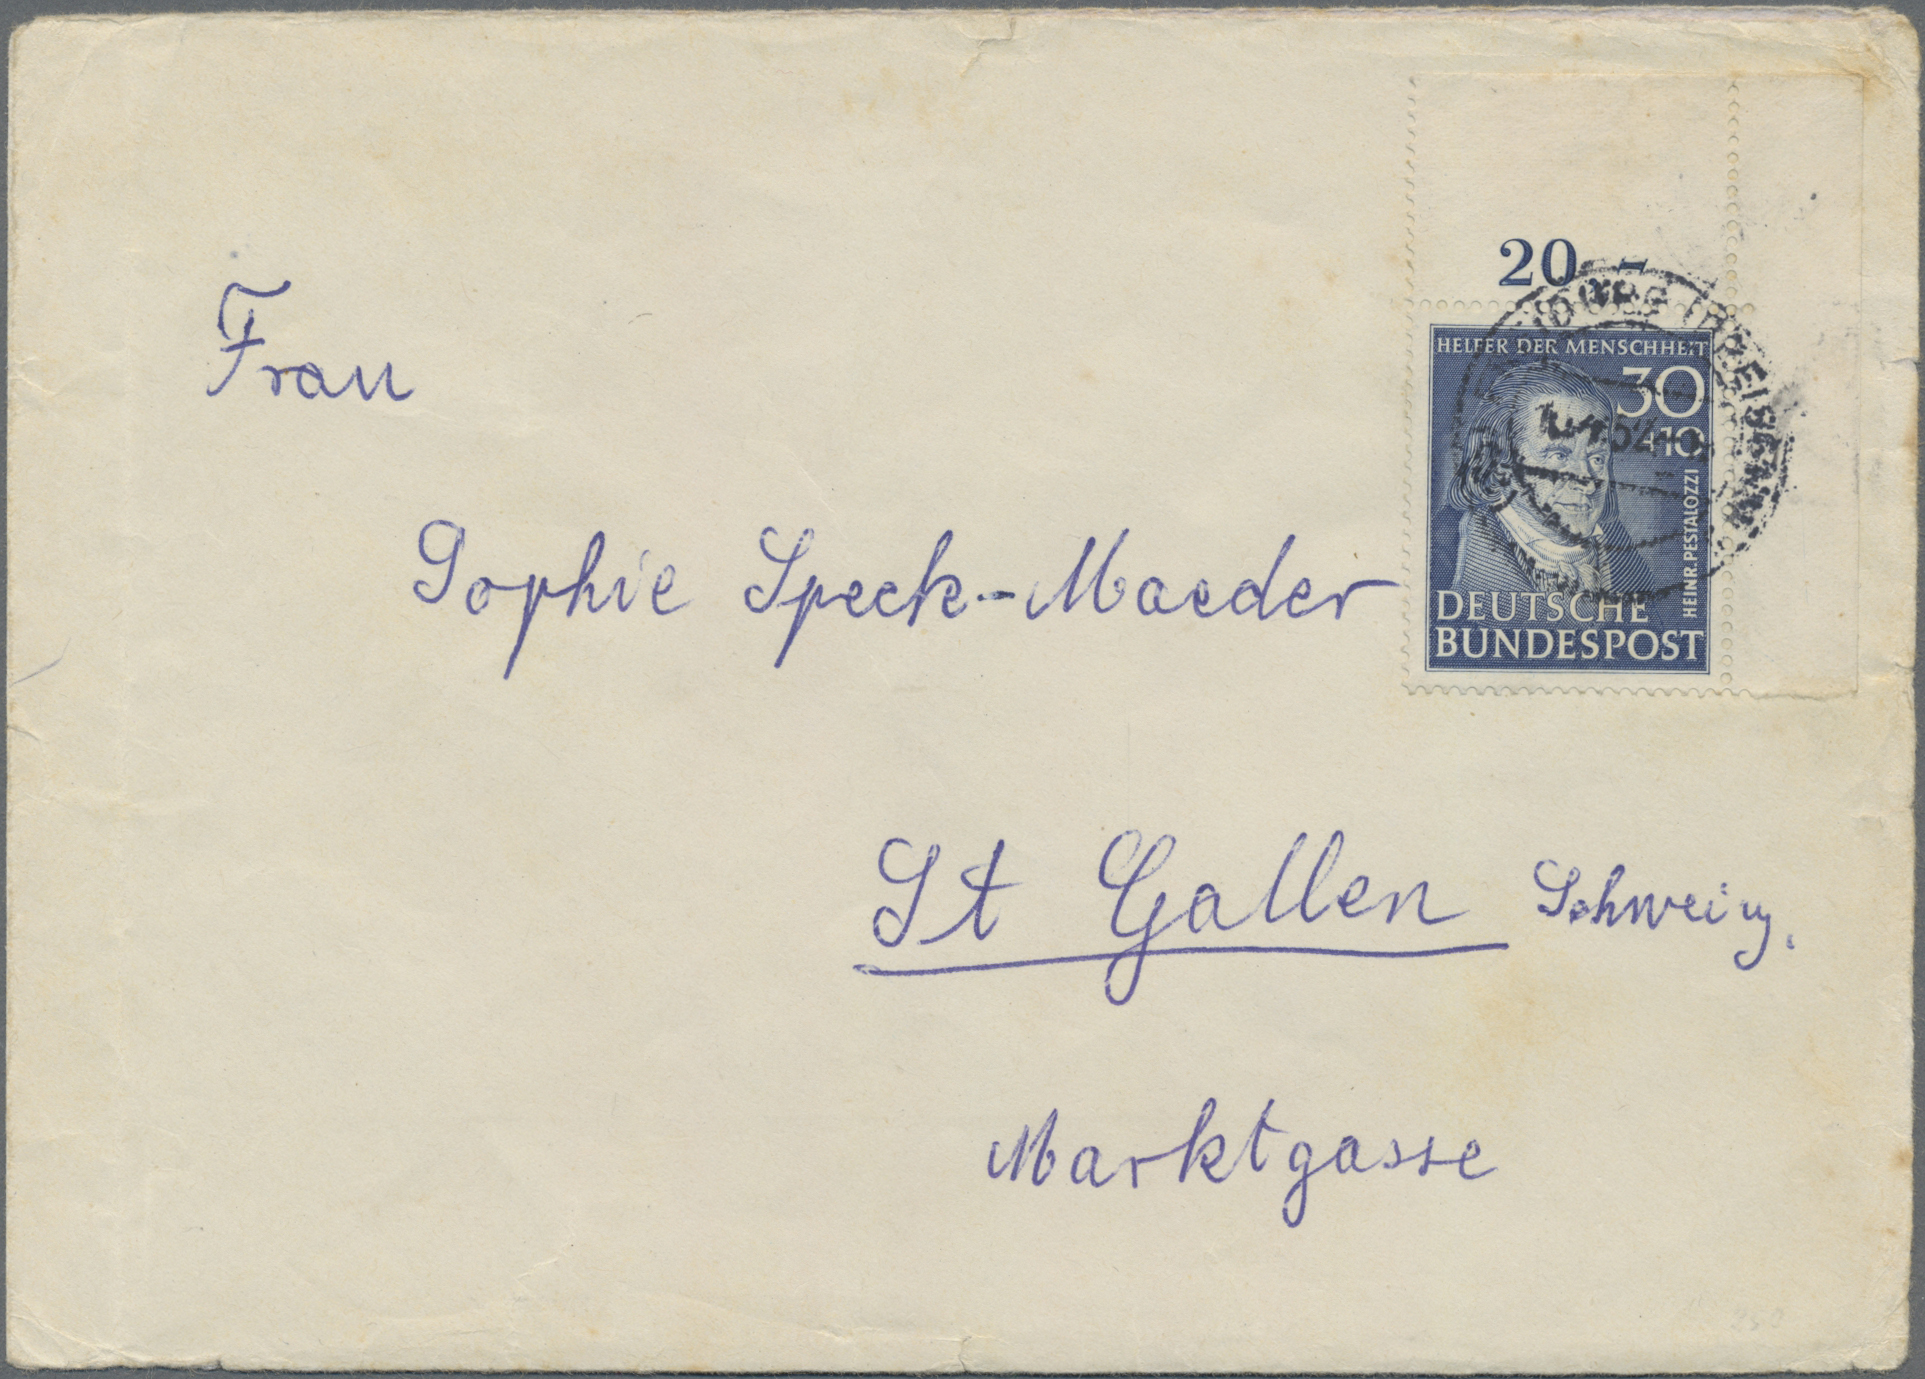 20.-
HELFER DER MENSCHHEIT
30
+10
HEINR. PESTALOZZI
DEUTSCHE
BUNDESPOST
Frau
Sophie Speck-Maeder
St Gallen Schweiz.
Marktgasse